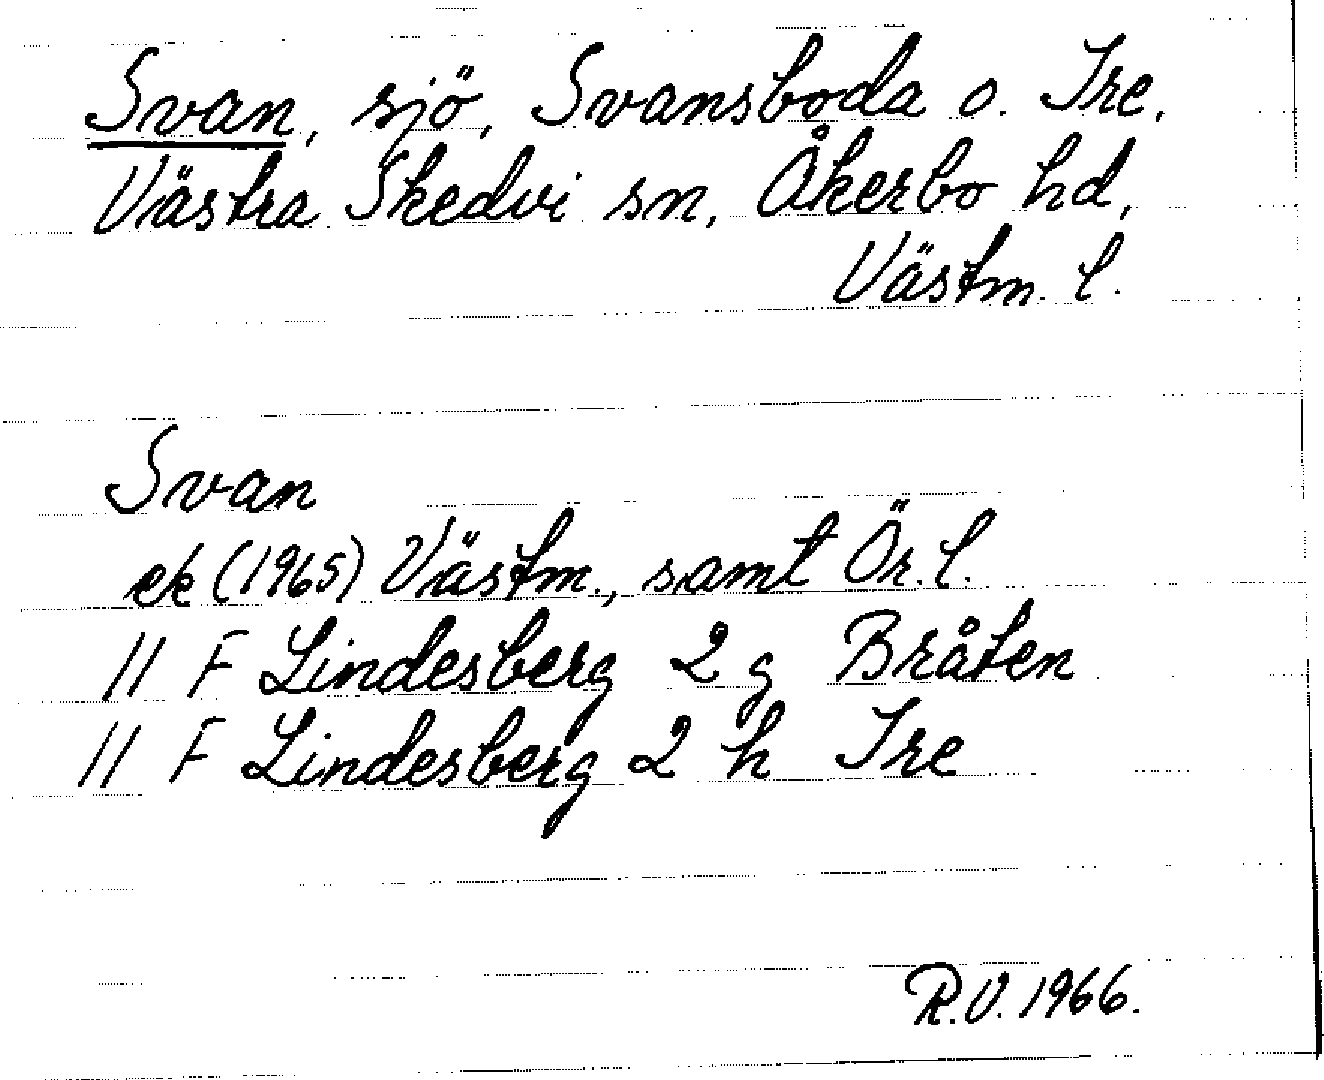 Svan, sjö, Svansboda o. Tre,
Västra Skedvi sn, Åkerbo hd,
Västm. l.
Svan
ek (1965) Västm., samt Ör. l.
11 F Lindesberg 2 g Bråten
11 F Lindesberg 2 h Tre
R.V. 1966.